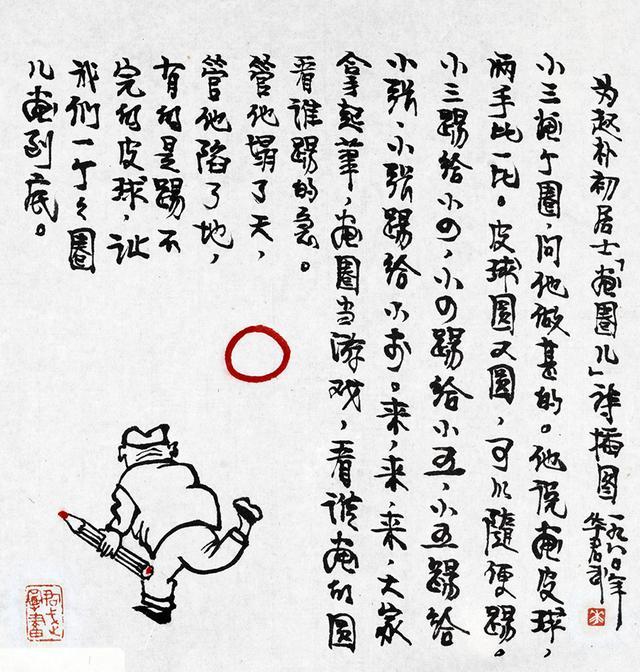 为赵朴初居士「画圈儿」诗插图
一九八〇年
华君武
小三画个圈,问他做甚的。他说画皮球,
两手比一比。皮球圆又圆,可以随便踢。
小三踢给小四,小四踢给小五,小五踢给
小张,小张踢给小李。来,来,来,大家
拿起笔,画圈当游戏,看谁画的圆
看谁踢的急。
管他塌了天,
管他陷了地,
有的是踢不
完的皮球,让
我们一个々圈
儿画到底。